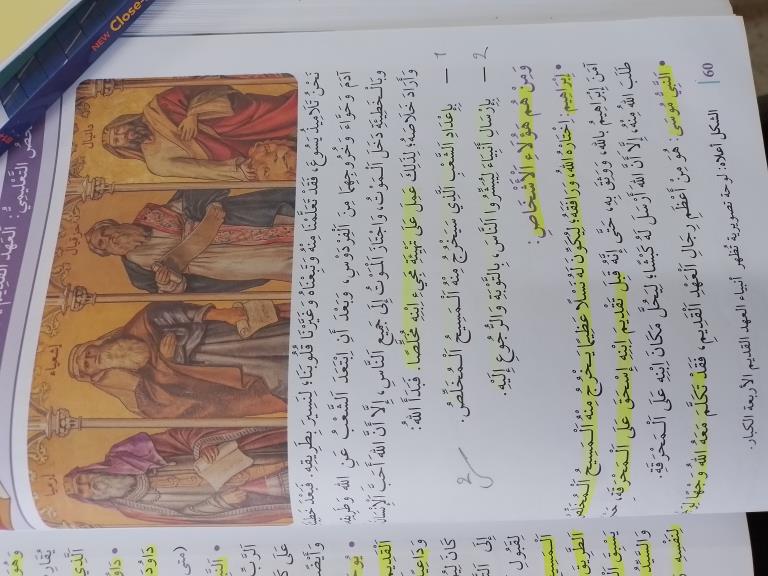 NEW Close-
الْعَهْدُ الْقَدِيم
دانيال
حزقيال
إشعياء
إرميا
نَحْنُ تَلَامِيذُ يَسُوعَ، فَقَدْ تَعَلَّمْنَا مِنْهُ وَتَبِعْنَاهُ وَغَيَّرْنَا قُلُوبَنَا؛ لِنَسِيرَ بِطَرِيقِهِ. فَبَعْدَ
آدَمَ وَحَوَّاءَ وَخُرُوجِهِمَا مِنَ الْفِرْدَوْسِ، وَبَعْدَ أَنِ ابْتَعَدَ الشَّعْبُ عَنِ اللهِ وَطَرِيقِهِ
وَبِالْخَطِيئَةِ دَخَلَ الْمَوْتُ، وَاجْتَازَ الْمَوْتُ إِلَى جَمِيعِ النَّاسِ، إِلَّا أَنَّ اللهَ أَحَبَّ الْإِنْسَانَ
وَأَرَادَ خَلَاصَهُ؛ لِذَلِكَ عَمِلَ عَلَى تَهْيِئَةِ مَجِيءِ ابْنِهِ مُخَلِّصًا. فَبَدَأَ اللهُ:
1 — بِإِعْدَادِ الشَّعْبِ الَّذِي سَيَخْرُجُ مِنْهُ الْمَسِيحُ الْمُخَلِّصُ.
2 — بِإِرْسَالِ أَنْبِيَاءَ لِيُبَشِّرُوا النَّاسَ، بِالتَّوْبَةِ وَالرُّجُوعِ إِلَيْهِ.
وَمِنْ هُمْ هَؤُلَاءِ الْأَشْخَاصِ:
• إِبْرَاهِيمُ: اخْتَارَهُ اللهُ، وَرَافَقَهُ؛ لِيَكُونَ لَهُ نَسْلًا عَظِيمًا يَخْرُجُ مِنْهُ الْمَسِيحُ الْمُخَلِّصُ
آمَنَ إِبْرَاهِيمُ بِاللهِ، وَوَثِقَ بِهِ، حَتَّى إِنَّهُ قَبِلَ تَقْدِيمَ ابْنِهِ إِسْحَقَ عَلَى الْمَحْرَقَةِ،
طَلَبَ اللهُ مِنْهُ، إِلَّا أَنَّ اللهَ أَرْسَلَ لَهُ كَبْشًا؛ لِيَحُلَّ مَكَانَ ابْنِهِ عَلَى الْمَحْرَقَةِ.
• النَّبِيُّ مُوسَى: هُوَ مِنْ أَعْظَمِ رِجَالِ الْعَهْدِ الْقَدِيمِ، فَقَدْ تَكَلَّمَ مَعَهُ اللهُ وَجْهًا
الشكل أعلاه: لوحة تصويرية تُظهر أنبياء العهد القديم الأربعة الكبار.
60